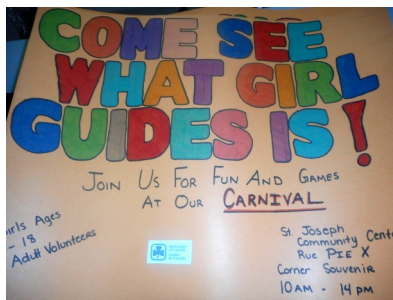 COME SEE
WHAT GIRL
GUIDES IS!
JOIN US FOR FUN AND GAMES
AT OUR CARNIVAL
Girls Ages
- 18
Adult Volunteers
St. Joseph
Community Cent
Rue PIE X
Corner Souvenir
10 AM - 14 PM